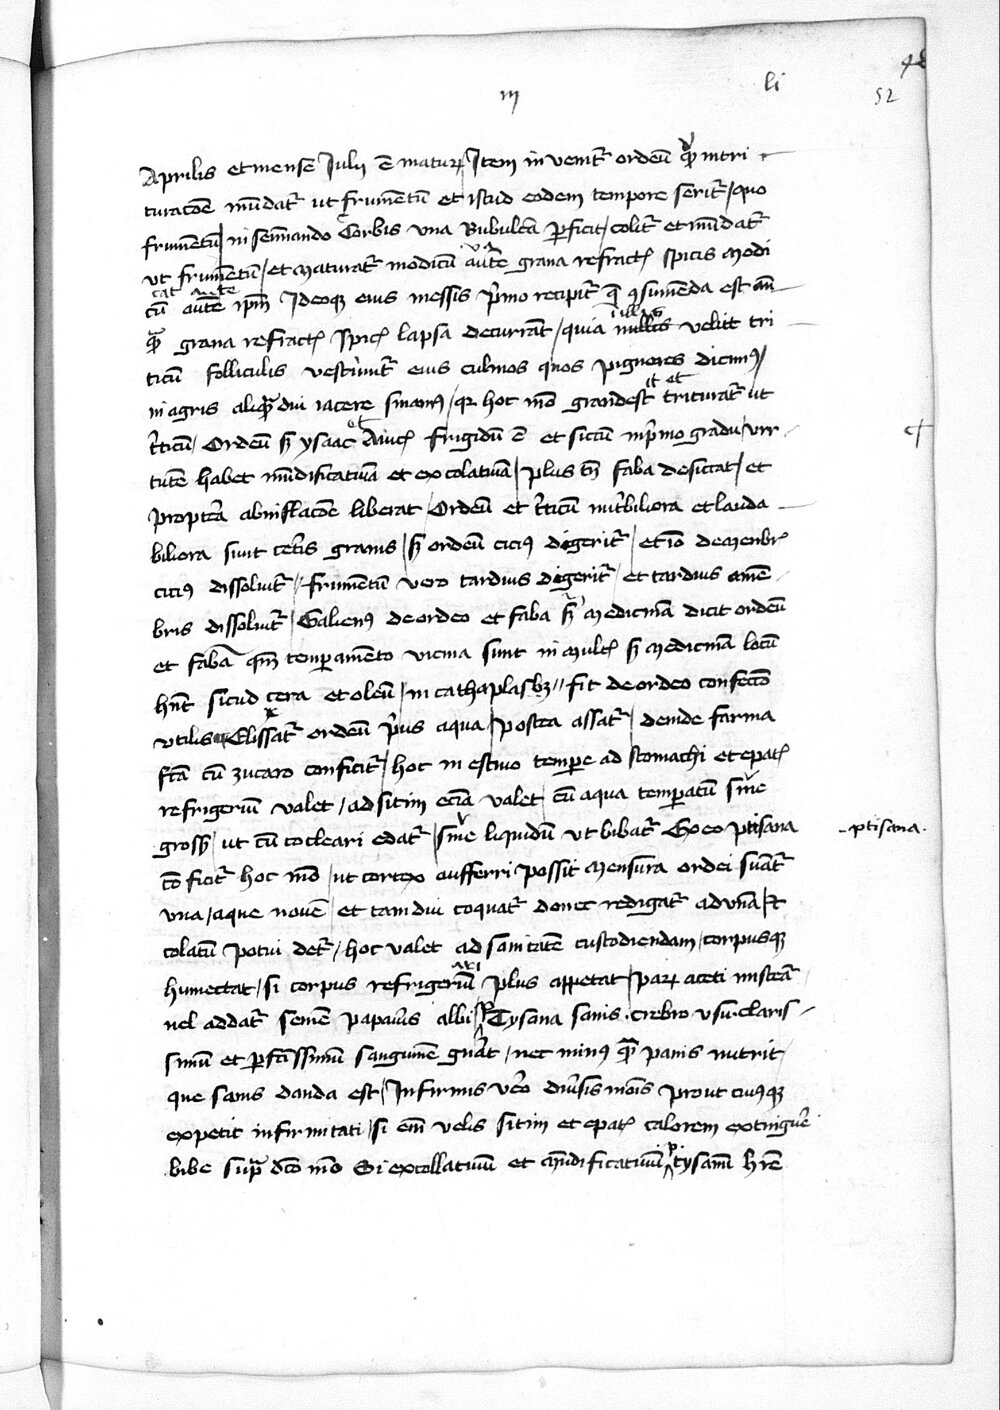 48
li
iij
52
Aprilis et mense Julij ē maturū Item invenitr ordeū qd in tri
turacōe mūdatr ut frumētū et istud eodem tempore seritr / quo
frumētū / in semīando Corbis una Bubulcā perficit / colitr et mūdatr
ut frumētū / et maturatr modicū aute grana refractis spicis modi
cū aute ipm Ideoqz eius messis primo recipitr
grana refractis spicis lapsa decurrāt / quia nullis velut tri
ticū folliculis vestiūtr eius culmos quos pigneres dicimus /
in agris aliqdiu iacere sinamus / qr hoc mō grandescit trituratr ut
triticū / Ordeū sz ysaac frigidū ē et siccū in primo gradu / vir
tutē habet mūdificatiuā et excolatiuā / plus tn faba desiccat / et
propterea ab inflacōe liberat / Ordeū et triticū nutribiliora et lauda
biliora sunt ceteris granis / sz ordeū cicius digeritr / et iō de menbris
cicius dissoluitr / frumētū vero tardius digeritr / et tardius a mē
bris dissoluitr / Galienus de ordeo et faba sz medicinā dicit ordeū
et fabā qm temperamento vicina sunt in multis sz medicinā locū
hnt sicud cera et oleū / in cathaplasbz // fit de ordeo confectō
utilis Elissatr ordeū prius aqua / postea assatr / deinde farina
fcā cū zucaro conficitr / hoc in estiuo tempe ad stomachi et epatis
refrigeriū valet / ad sitim eciā valet / cū aqua temperatū siue
grossū / ut cū cocleari edatr / siue liquidū ut bibatr Ex eo ptisana
cōficitr hoc mō / ut cortex aufferri possit mensura ordei
una / aque nouē / et tamdiu coquatr donec redigatr ad unā / et
colatū potui detr / hoc valet ad sanitatē custodiendam / corpusqz
humectat / si corpus refrigeriū plus appetat / parū aceti misceatr
uel addatr semē papaueris albi / Tysana sanis crebro usu claris
simū et perfectissimū sanguinē gnāt / nec minus quam panis nutrit
que sanis danda est / Infirmis vero diuersis mōis prout cuiusqz
expetit infirmitati / si em velis sitim et epatis calorem extinguere
bibe supra dco mō Si excollatiuū et mūdificatiuū tysanā hre
ptisana